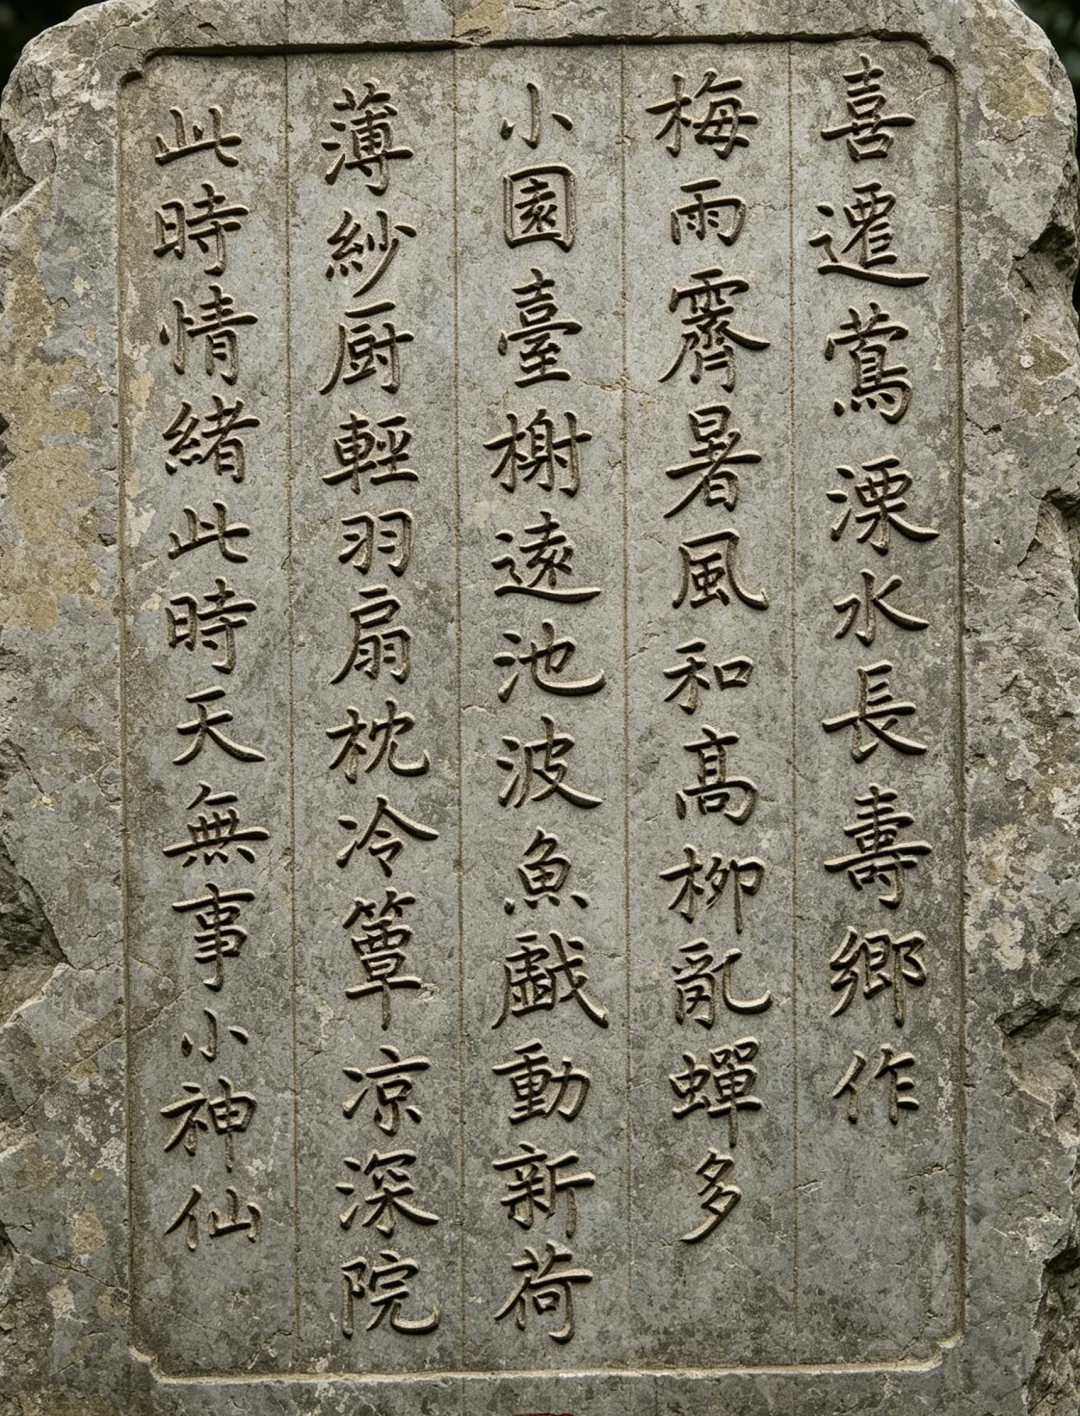 喜遷鶯 溧水長壽鄉作
梅雨霽暑風和高柳亂蟬多
小園臺榭遠池波魚戲動新荷
薄紗厨輕羽扇枕冷簟凉深院
此時情緒此時天無事小神仙